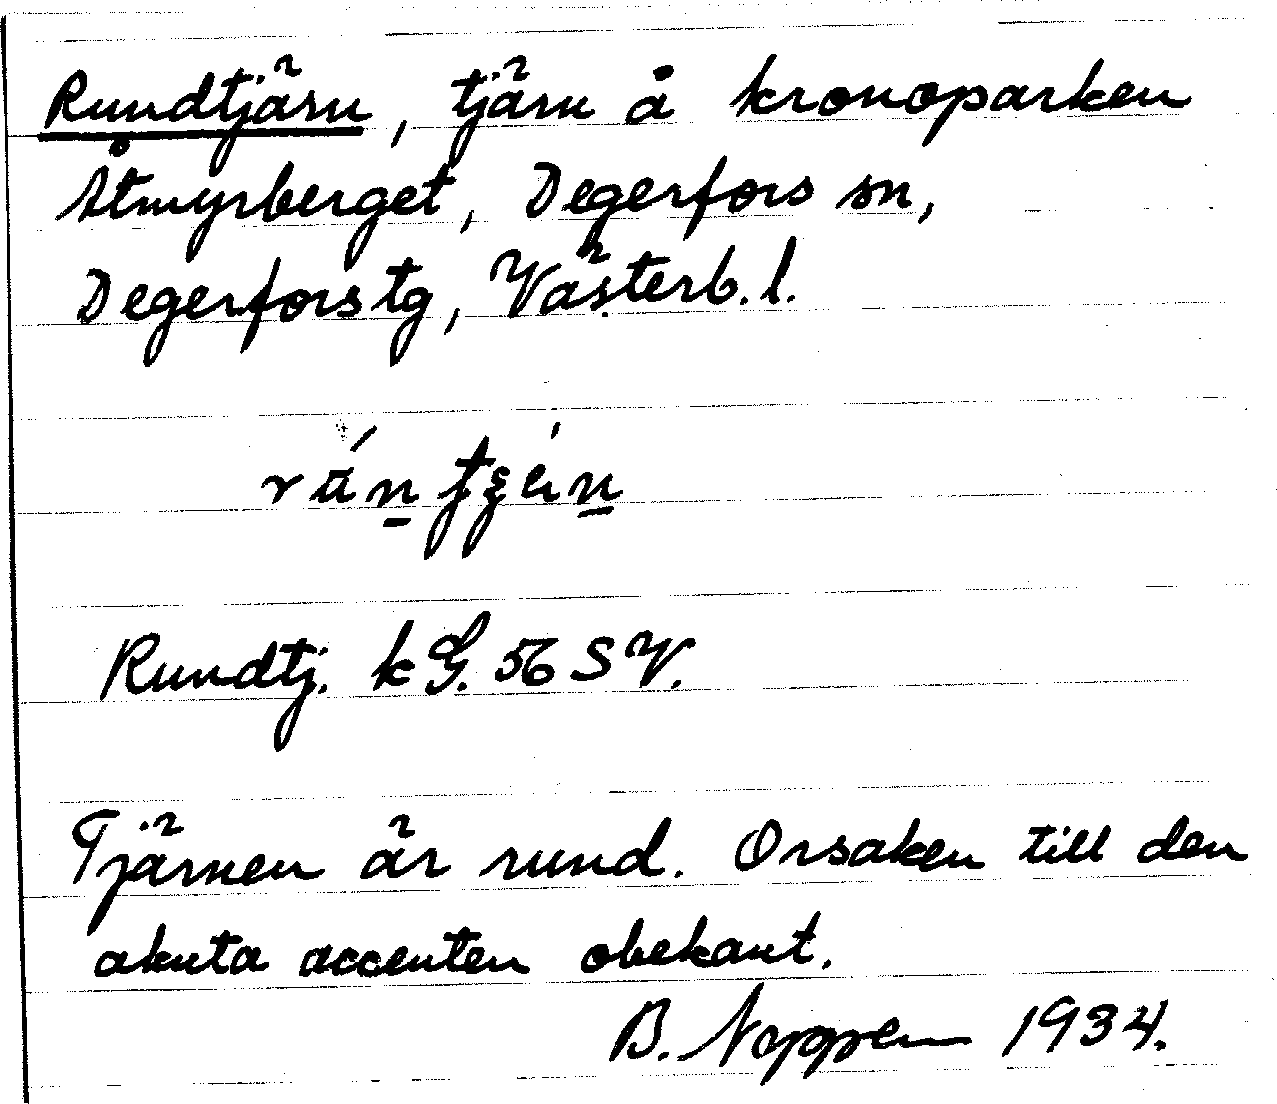 Rundtjärn, tjärn å kronoparken
Åtmyrberget, Degerfors sn,
Degerfors tg, Västerb. l.
Rundtj. kG. 56 SV.
Tjärnen är rund. Orsaken till den
akuta accenten obekant.
B. 1934.